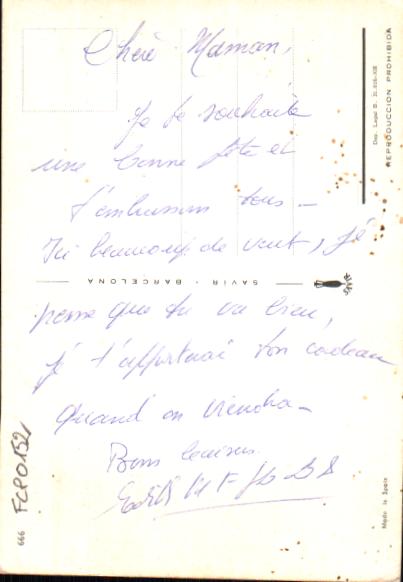 Chère Maman,
Je te souhaite
une bonne fête et
t'embrassons tous -
Ici beaucoup de vent, je
pense que tu va bien,
je t'apporterai ton cadeau
quand on viendra -
Bons baisers
SAVIR - BARCELONA
Dep. Legal B.
REPRODUCCION PROHIBIDA
Made in Spain
666
FCPO152